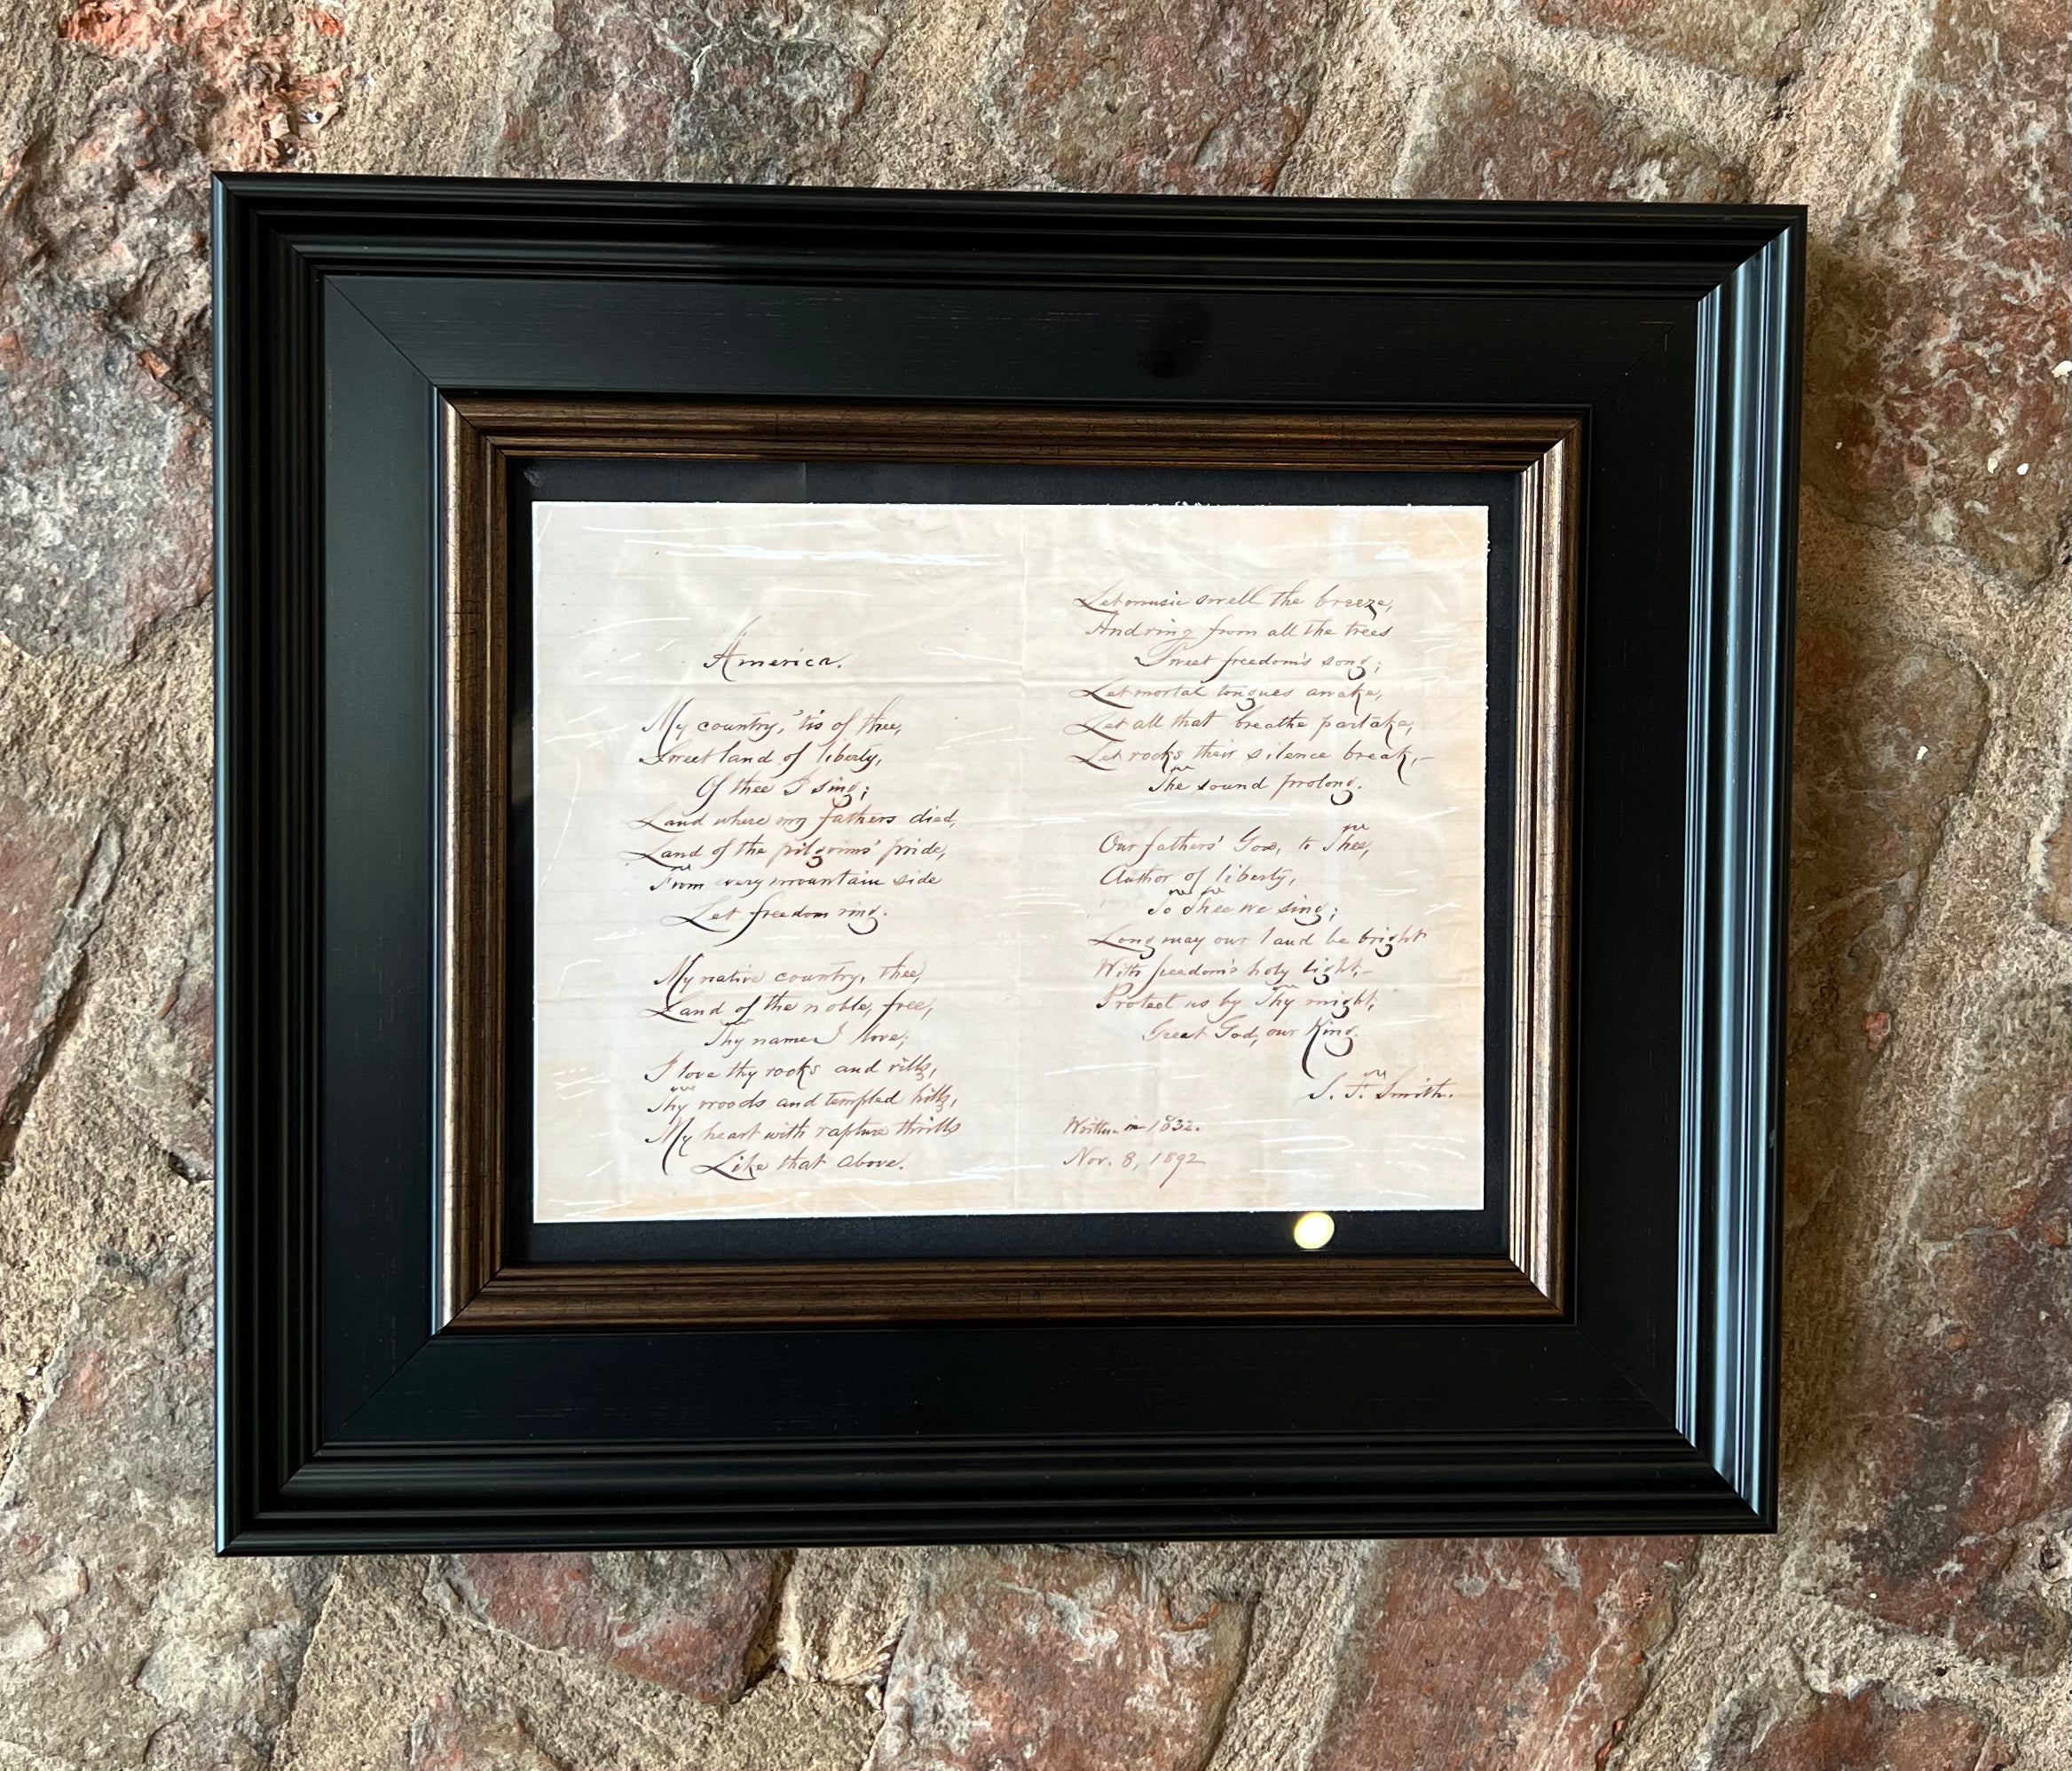 America.
My country, 'tis of thee,
Sweet land of liberty,
Of thee I sing;
Land where my fathers died,
Land of the pilgrims' pride,
From every mountain side
Let freedom ring.
My native country, thee,
Land of the noble, free,
Thy name I love;
I love thy rocks and rills,
Thy woods and templed hills,
My heart with rapture thrills
Like that above.
Let music swell the breeze,
And ring from all the trees
Sweet freedom's song;
Let mortal tongues awake,
Let all that breathe partake,
Let rocks their silence break,—
The sound prolong.
Our fathers' God, to Thee,
Author of liberty,
To Thee we sing;
Long may our land be bright
With freedom's holy light,—
Protect us by Thy might,
Great God, our King.
S. F. Smith.
Written in 1832.
Nov. 8, 1892